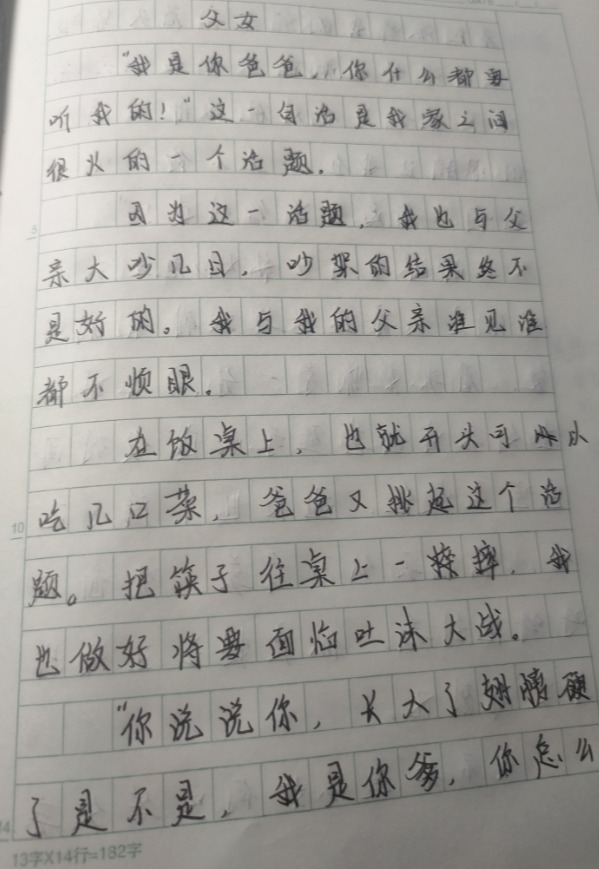 父女
"我是你爸爸，你什么都要
听我的！"这一句话是我家之间
很火的一个话题.
因为这一话题，我也与父
亲大吵几日，吵架的结果终不
是好的。我与我的父亲谁见谁
都不顺眼.
5
在饭桌上，也就开头可以
吃几口菜，爸爸又挑起这个话
10
题。把筷子往桌上一摔，我
也做好将要面临吐沫大战。
"你说说你，长大了翅膀硬
了是不是，我是你爹，你怎么
14
13字X14行=182字